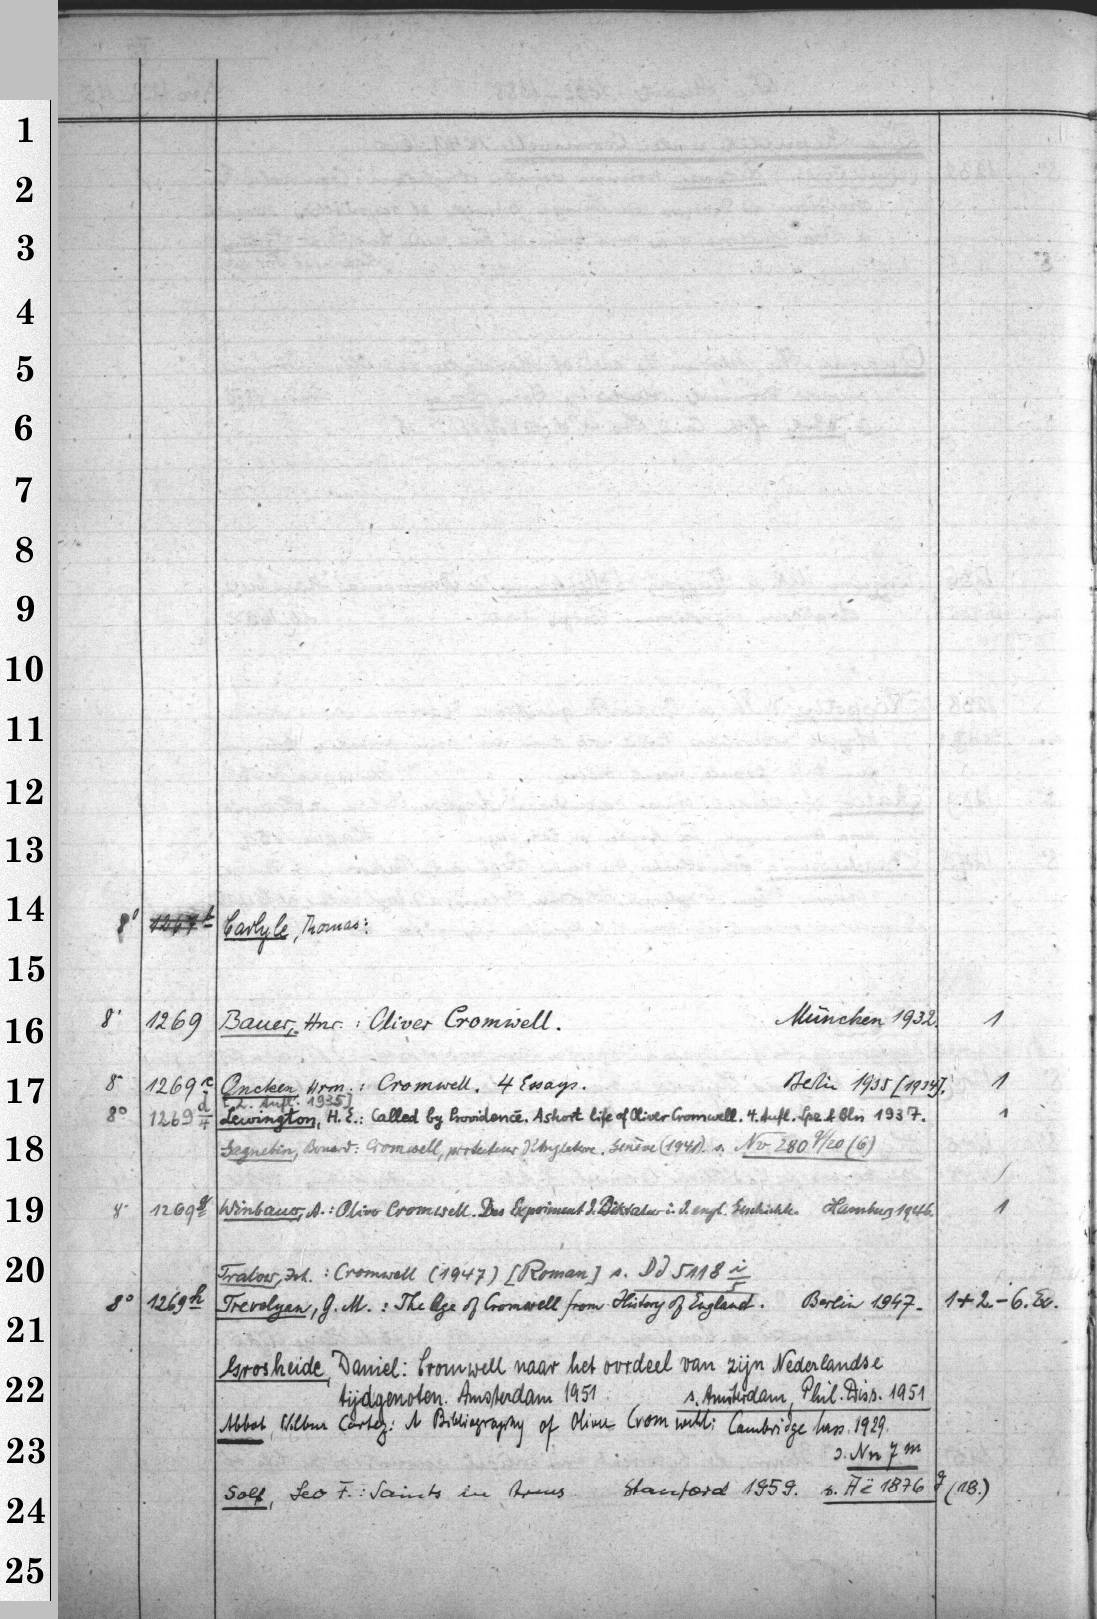 1
2
3
4
5
6
7
8
9
10
11
12
13
14
15
16
17
18
19
20
21
22
23
24
25
8° 1267 b Carlyle, Thomas:
8° 1269 Bauer, Hnr. : Oliver Cromwell. München 1932. 1
8° 1269 c Oncken, Hrm. : Cromwell. 4 Essays. Berlin 1935 [1934]. 1
[2. Aufl. 1935]
8° 1269 d/4 Lewington, H. E.: Called by Providence. A short life of Oliver Cromwell. 4. Aufl. Lpz. & Bln 1937. 1
Gagnebin, Bernard: Cromwell, protecteur d'Angleterre. Genève (1941). s. Nv 280 9/20 (6)
8° 1269 g Winbauer, A.: Oliver Cromwell. Das Experiment d. Diktatur i. d. engl. Geschichte. Hamburg 1946. 1
Tralow, Joh. : Cromwell (1947) [Roman] s. Dd 5118 i/5
8° 1269 h Trevelyan, G. M. : The Age of Cromwell from History of England. Berlin 1947. 1 + 2.-6. Ex.
Grosheide, Daniel: Cromwell naar het oordeel van zijn Nederlandse
tijdgenoten. Amsterdam 1951 s. Amsterdam, Phil. Diss. 1951
Abbot, Wilbur Cortez: A Bibliography of Oliver Cromwell: Cambridge Mass. 1929.
s. Nn 7 m
Solf, Leo F. : Saints in Arms Stanford 1959. s. Ac 1876 g (18.)